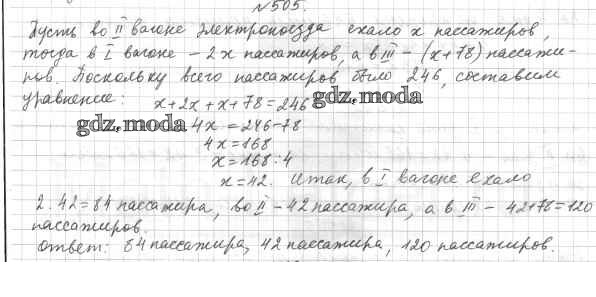 №505.
Пусть во II вагоне электропоезда ехало x пассажиров,
тогда в I вагоне – 2x пассажиров, а в III – (x+78) пассажи-
ров. Поскольку всего пассажиров было 246, составим
уравнение: x+2x+x+78=246 gdz.moda
gdz.moda 4x=246-78
4x=168
x=168:4
x=42. Итак, в I вагоне ехало
2·42=84 пассажира, во II – 42 пассажира, а в III – 42+78=120
пассажиров.
Ответ: 84 пассажира, 42 пассажира, 120 пассажиров.